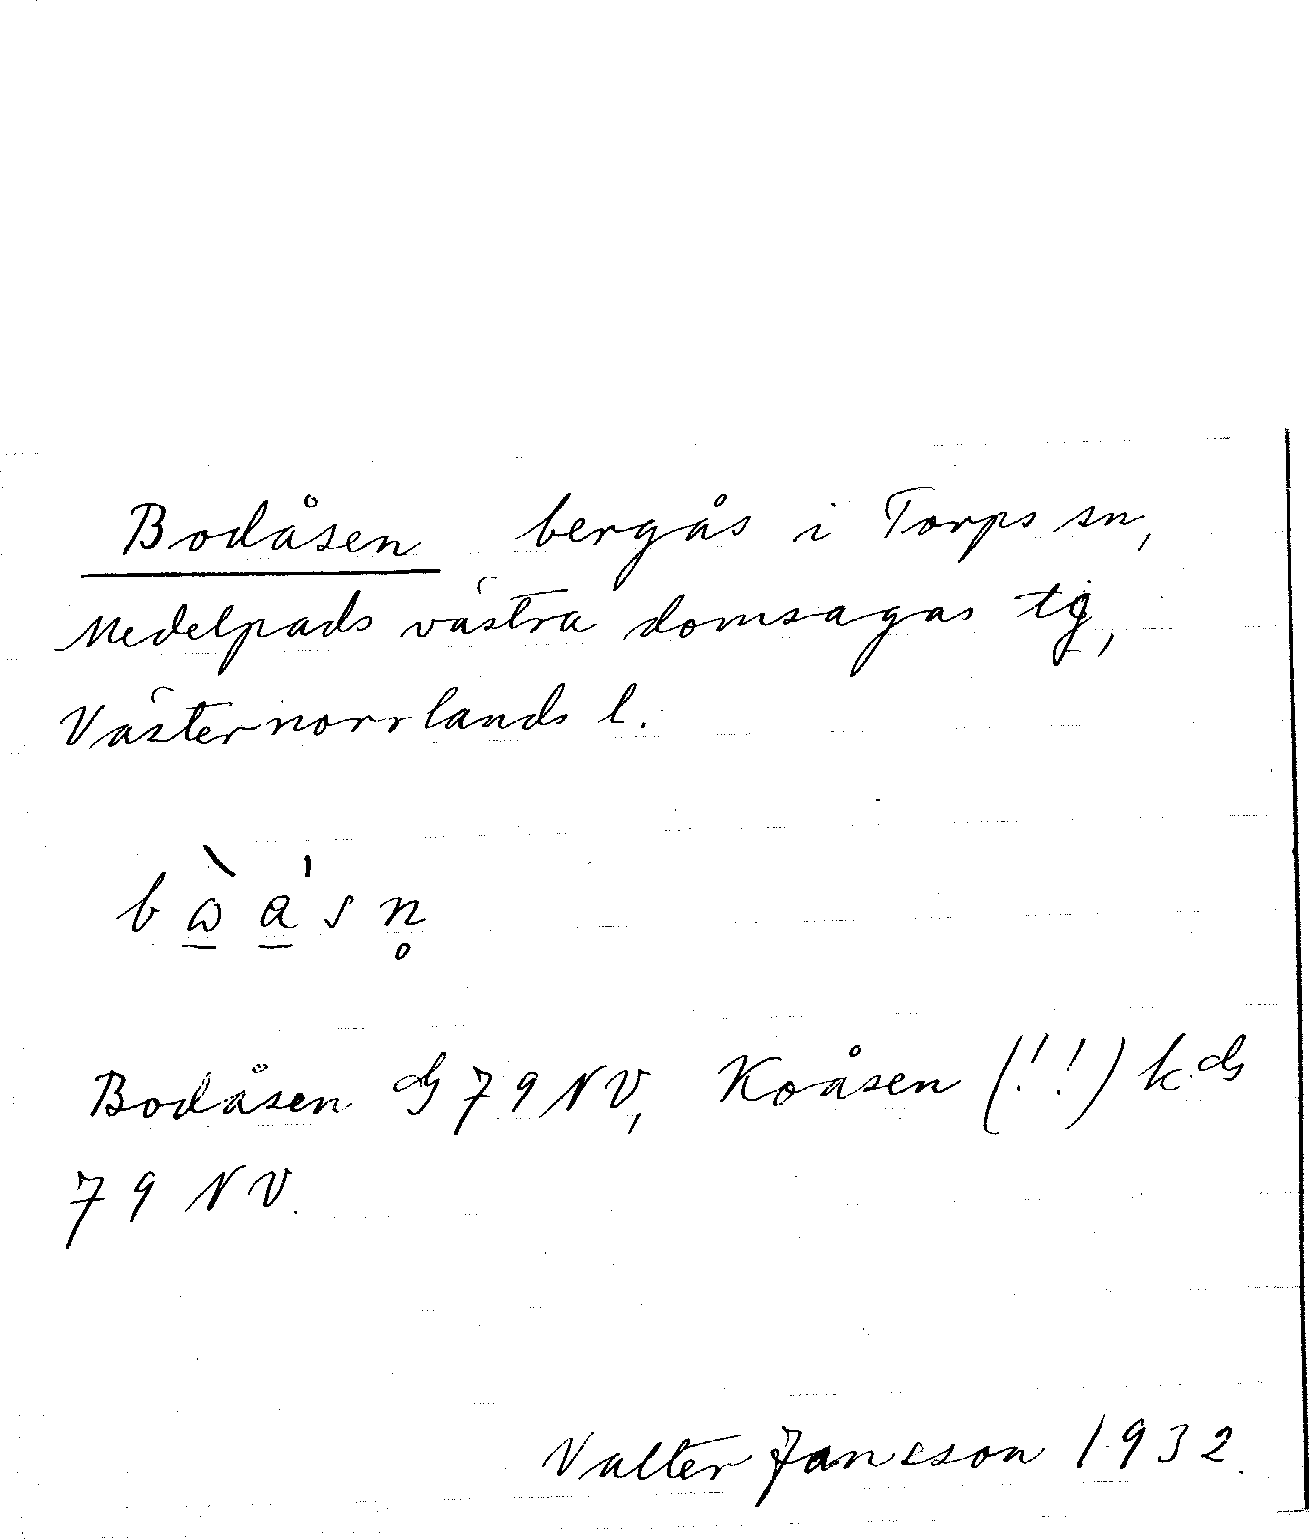 Bodåsen bergås i Torps sn,
Medelpads västra domsagas tg,
Västernorrlands l.
Bodåsen 79 NV, Koåsen (!!)
79 NV.
Valter Jansson 1932.